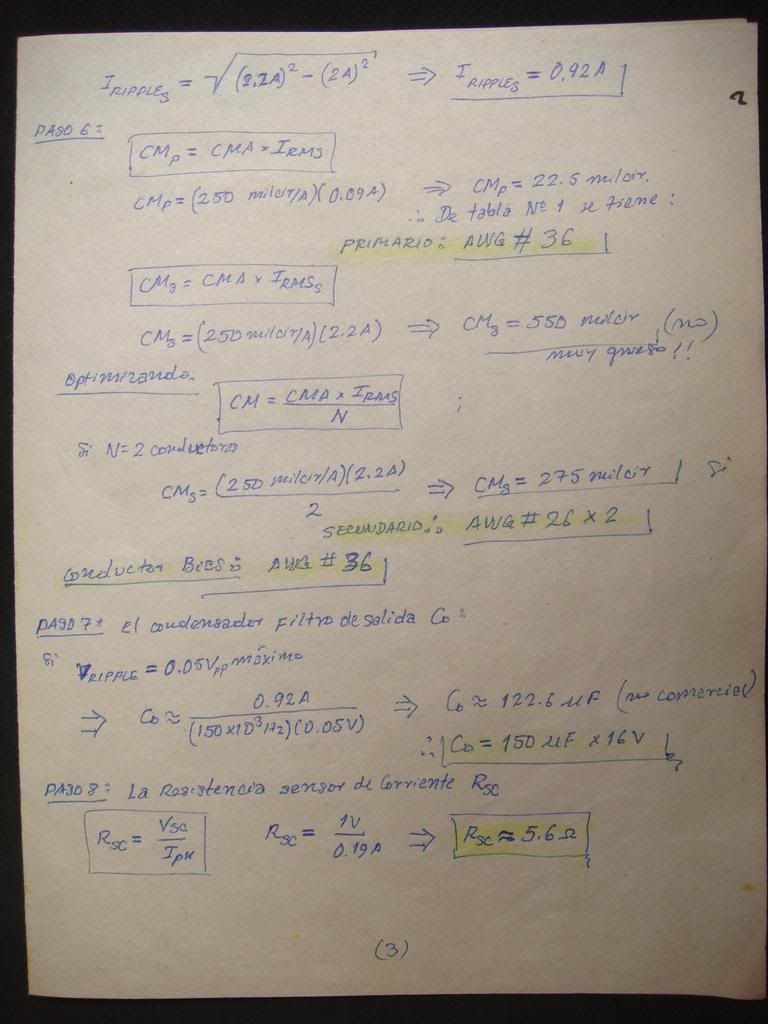 I_RIPPLES = √(2.2A)² - (2A)² ⇒ I_RIPPLES = 0.92A
2
PASO 6:
CMp = CMA × I_RMS
CMp = (250 milcir/A)(0.09A) ⇒ CMp = 22.5 milcir.
∴ De tabla Nº 1 se tiene:
PRIMARIO: AWG # 36
CMs = CMA × I_RMSs
CMs = (250 milcir/A)(2.2A) ⇒ CMs = 550 milcir (no)
muy grueso!!
Optimizando.
CM = CMA × I_RMS / N ;
Si N=2 conductores
CMs = (250 milcir/A)(2.2A) / 2 ⇒ CMs = 275 milcir Si
SECUNDARIO∴ AWG # 26 × 2
Conductor Bias: AWG # 36
PASO 7: El condensador Filtro de salida Co:
Si V_RIPPLE = 0.05Vpp máximo
⇒ Co ≈ 0.92A / (150×10³Hz)(0.05V) ⇒ Co ≈ 122.6 µF (no comercial)
∴ Co = 150 µF × 16V
PASO 8: La Resistencia sensor de Corriente Rsc
Rsc = Vsc / Ipk Rsc = 1V / 0.19A ⇒ Rsc ≈ 5.6Ω
(3)